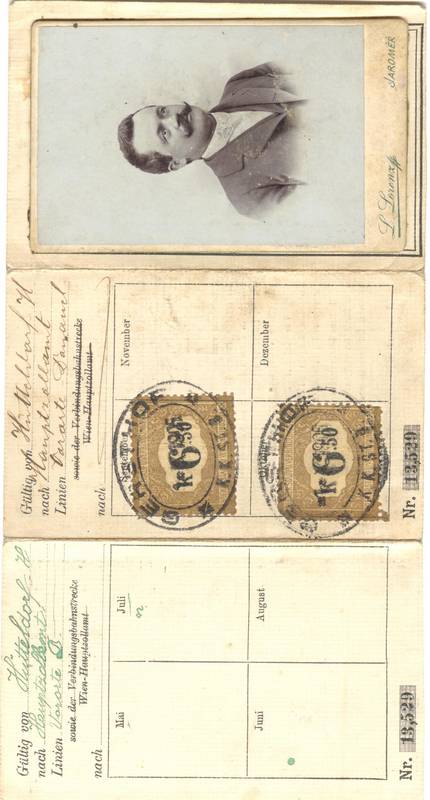 L. Lorenz
JAROMĚŘ
Gültig von Hütteldorf H
nach Hauptzollamt
Linien Vororte Donaucanal
sowie der Verbindungsbahnstrecke
Wien-Hauptzollamt
nach
September
November
Dezember
6
K
30
K.K.St.B.
6
K
30
K.K.St.B.
Nr. 13,529
Gültig von Hütteldorf H
nach Hauptzollamt
Linien Vororte D
sowie der Verbindungsbahnstrecke
Wien-Hauptzollamt
nach
Mai
Juli
Juni
August
Nr. 13,529